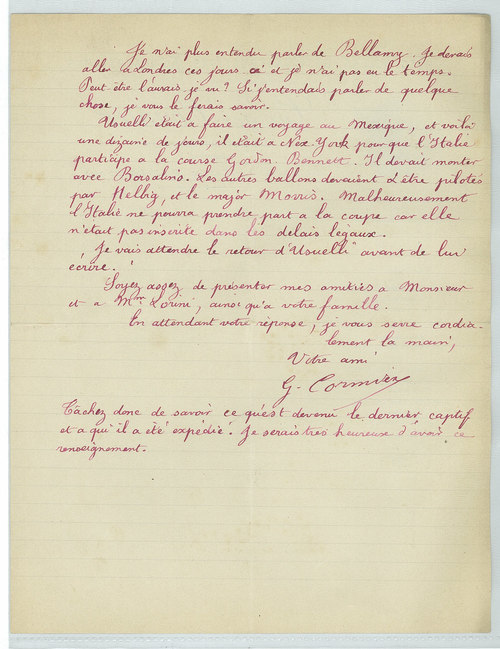 Je n'ai plus entendu parler de Bellamy. Je devais
aller à Londres ces jours ci et je n'ai pas eu le temps.
Peut être l'aurais je vu? Si j'entendais parler de quelque
chose, je vous le ferais savoir.
Usuelli était a faire un voyage au Mexique, et voilà
une dizaine de jours, il était a New York pour que l'Italie
participe a la course Gordon Bennett. Il devait monter
avec Borsalino. Les autres ballons devaient être pilotés
par Helbig, et le major Morris. Malheureusement
l'Italie ne pourra prendre part a la coupe car elle
n'etait pas inscrite dans les delais legaux.
Je vais attendre le retour d'Usuelli avant de lui
écrire.
Soyez assez de présenter mes amitiés a Monsieur
et a Mme Lorini, ainsi qu'a votre famille.
En attendant votre réponse, je vous serre cordia-
lement la main,
Votre ami
G. Cormier
Tâchez donc de savoir ce qu'est devenu le dernier captif
et a qui il a été expédié. Je serais tres heureuse d'avoir ce
renseignement.